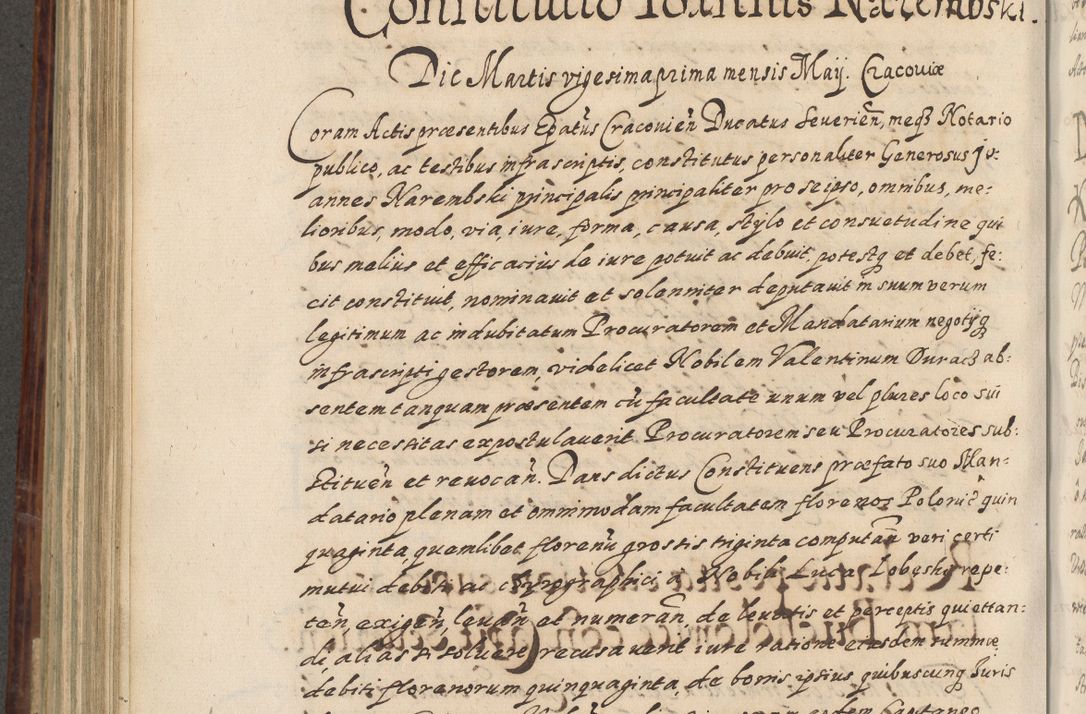 Constitutio Ioannis Narembski.
Die Martis vigesimaprima mensis Maij. Cracoviæ
Coram Actis præsentibus Epatus Cracovien Ducatus Severien, meqz Notario
publico, ac testibus infrascriptis, constitutus personaliter Generosus Jo:
annes Narembski principalis principaliter pro se ipso, omnibus, me:
lioribus, modo, via, iure, forma, causa, stylo et consuetudine qui
bus melius et efficacius de iure potuit ac debuit, potestq et debet, fe:
cit constituit, nominavit et solenniter deputavit in suum verum
legitimum ac indubitatum Procuratorem et Mandatarium negotijq
infrascripti gestorem, videlicet Nobilem Valentinum Duracz ab:
sentem tanquam præsentem cu facultate unum vel plures loco sui
si necessitas expostulaverit Procuratorem seu Procuratores sub:
stituen et revocan. Dans dictus Constituens præfato suo Man:
datario plenam et omnimodam facultatem florenos Polonic quin
quaginta, quemlibet florenu grossis triginta computan veri certi
mutui debiti ac chyrographici a Nobili Luca repe:
ten, exigen, levan et numeran, de levatis et perceptis quiettan:
di, alias si solvere recusaverit iure ratione eiusdem summæ
debiti florenorum quinquaginta, de bonis ipsius quibuscunq Iuris
Capitaneo